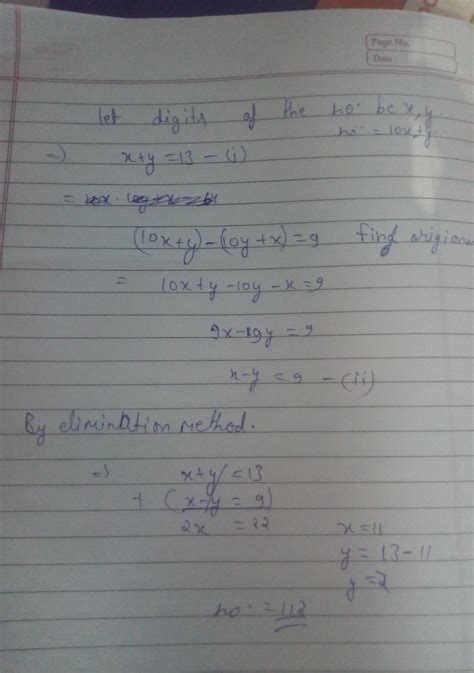 Page No.
Date:
let digits of the no. be x, y.
no. = 10x+y.
=> x+y = 13 - (i)
(10x+y)-(10y+x) = 9 find
= 10x+y-10y-x = 9
9x-9y = 9
x-y = 9 - (ii)
By elimination method.
=> x+y = 13
+ (x-y = 9)
2x = 22
x = 11
y = 13-11
y = 2
no. = 112